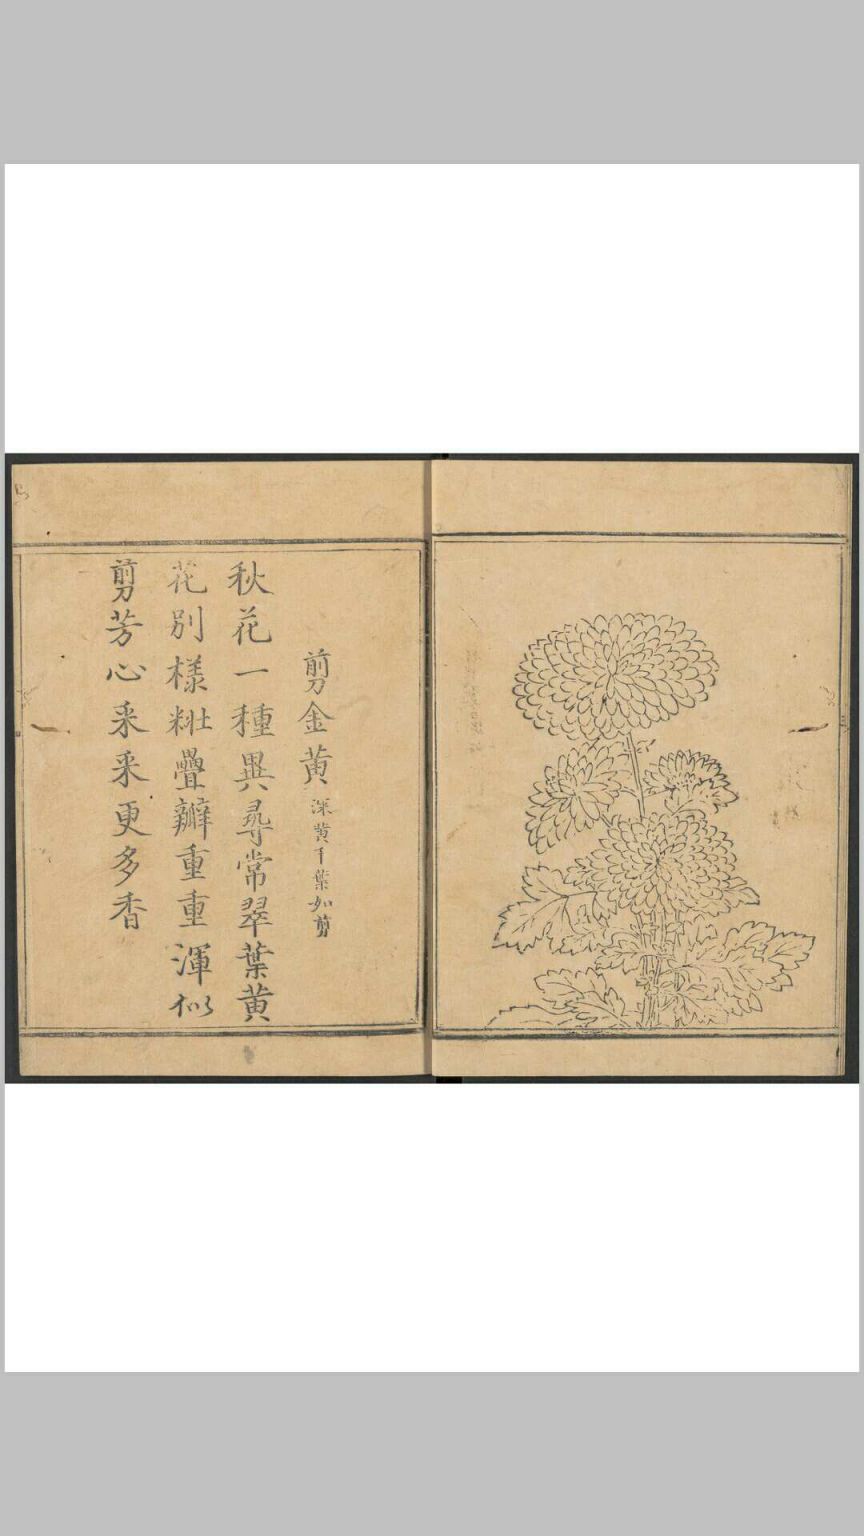 剪金黄深黄千葉如剪
秋花一種異尋常翠葉黄
花别樣粧疊瓣重重渾似
剪芳心采采更多香